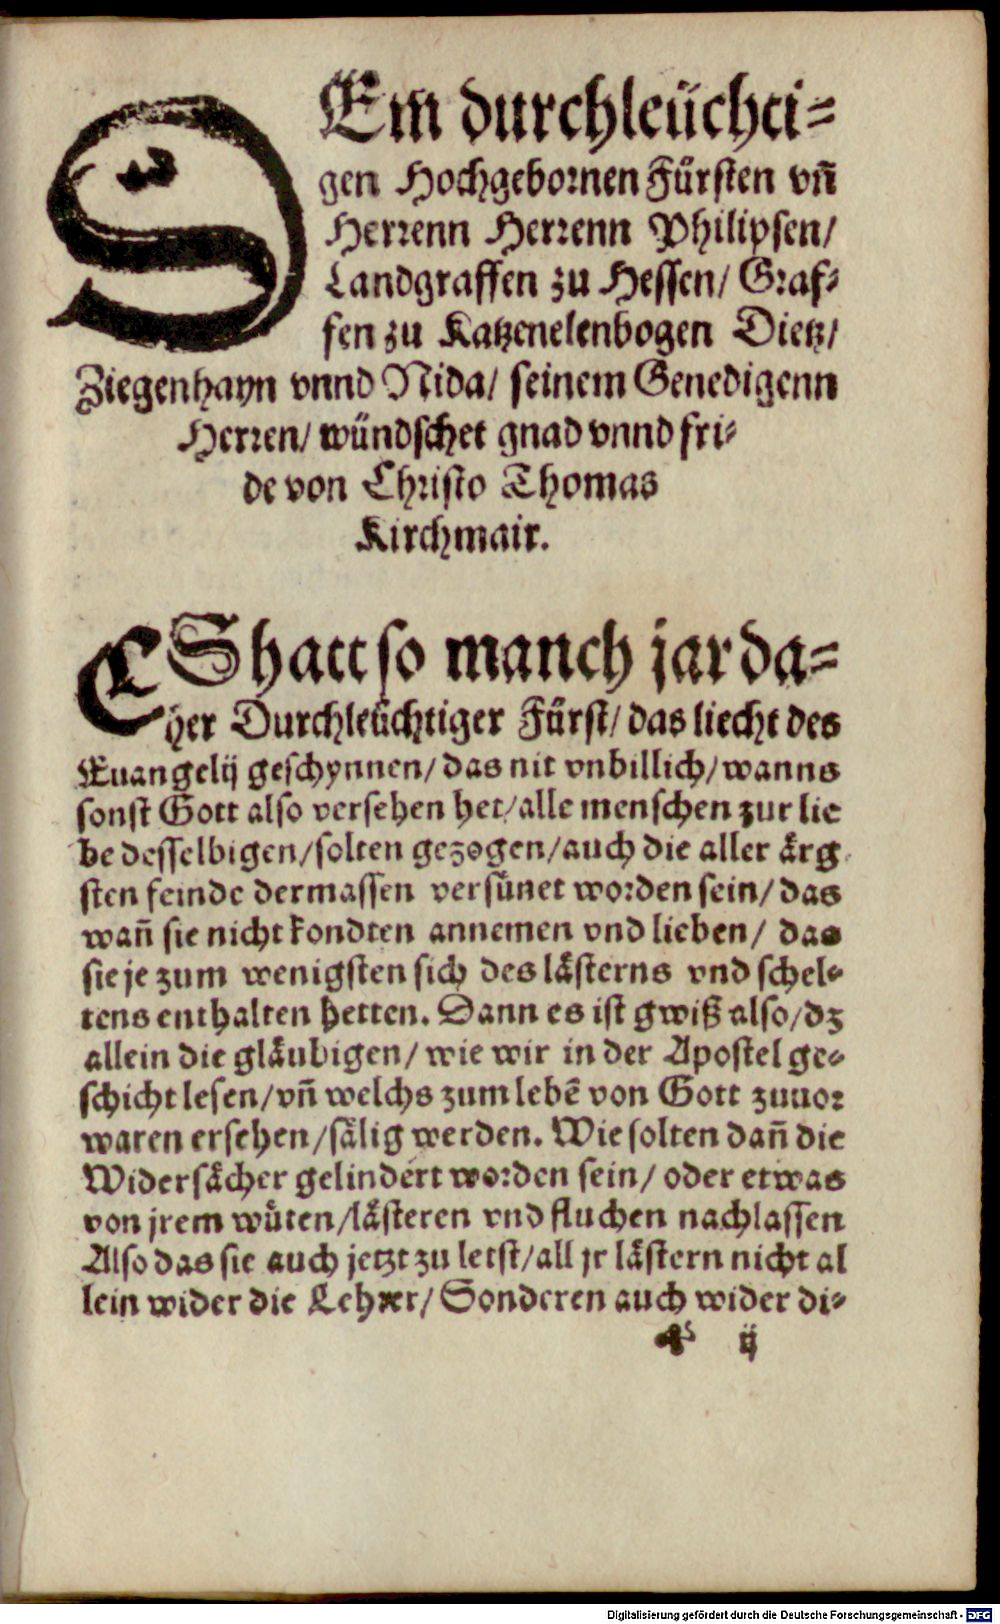 DEm durchleüchti⸗
gen Hochgebornen Fürsten vñ
Herrenn Herrenn Philipsen/
Landgraffen zu Hessen/ Graf⸗
fen zu Katzenelenbogen Dietz/
Ziegenhayn vnnd Nida/ seinem Genedigenn
Herren/ wündschet gnad vnnd fri⸗
de von Christo Thomas
Kirchmair.
ES hatt so manch jar da⸗
her Durchleüchtiger Fürst/ das liecht des
Euangelij geschynnen/ das nit vnbillich/ wanns
sonst Gott also versehen het/ alle menschen zur lie
be desselbigen/ solten gezogen/ auch die aller ärg
sten feinde dermassen versünet worden sein/ das
wañ sie nicht kondten annemen vnd lieben/ das
sie je zum wenigsten sich des lästerns vnd schel⸗
tens enthalten hetten. Dann es ist gwiß also/ dz
allein die gläubigen/ wie wir in der Apostel ge⸗
schicht lesen/ vñ welchs zum lebẽ von Gott zuuor
waren ersehen/ sälig werden. Wie solten dañ die
Widersächer gelindert worden sein/ oder etwas
von jrem wüten/ lästeren vnd fluchen nachlassen
Also das sie auch jetzt zu letst/ all jr lästern nicht al
lein wider die Lehrer/ Sonderen auch wider di⸗
ij
Digitalisierung gefördert durch die Deutsche Forschungsgemeinschaft - DFG